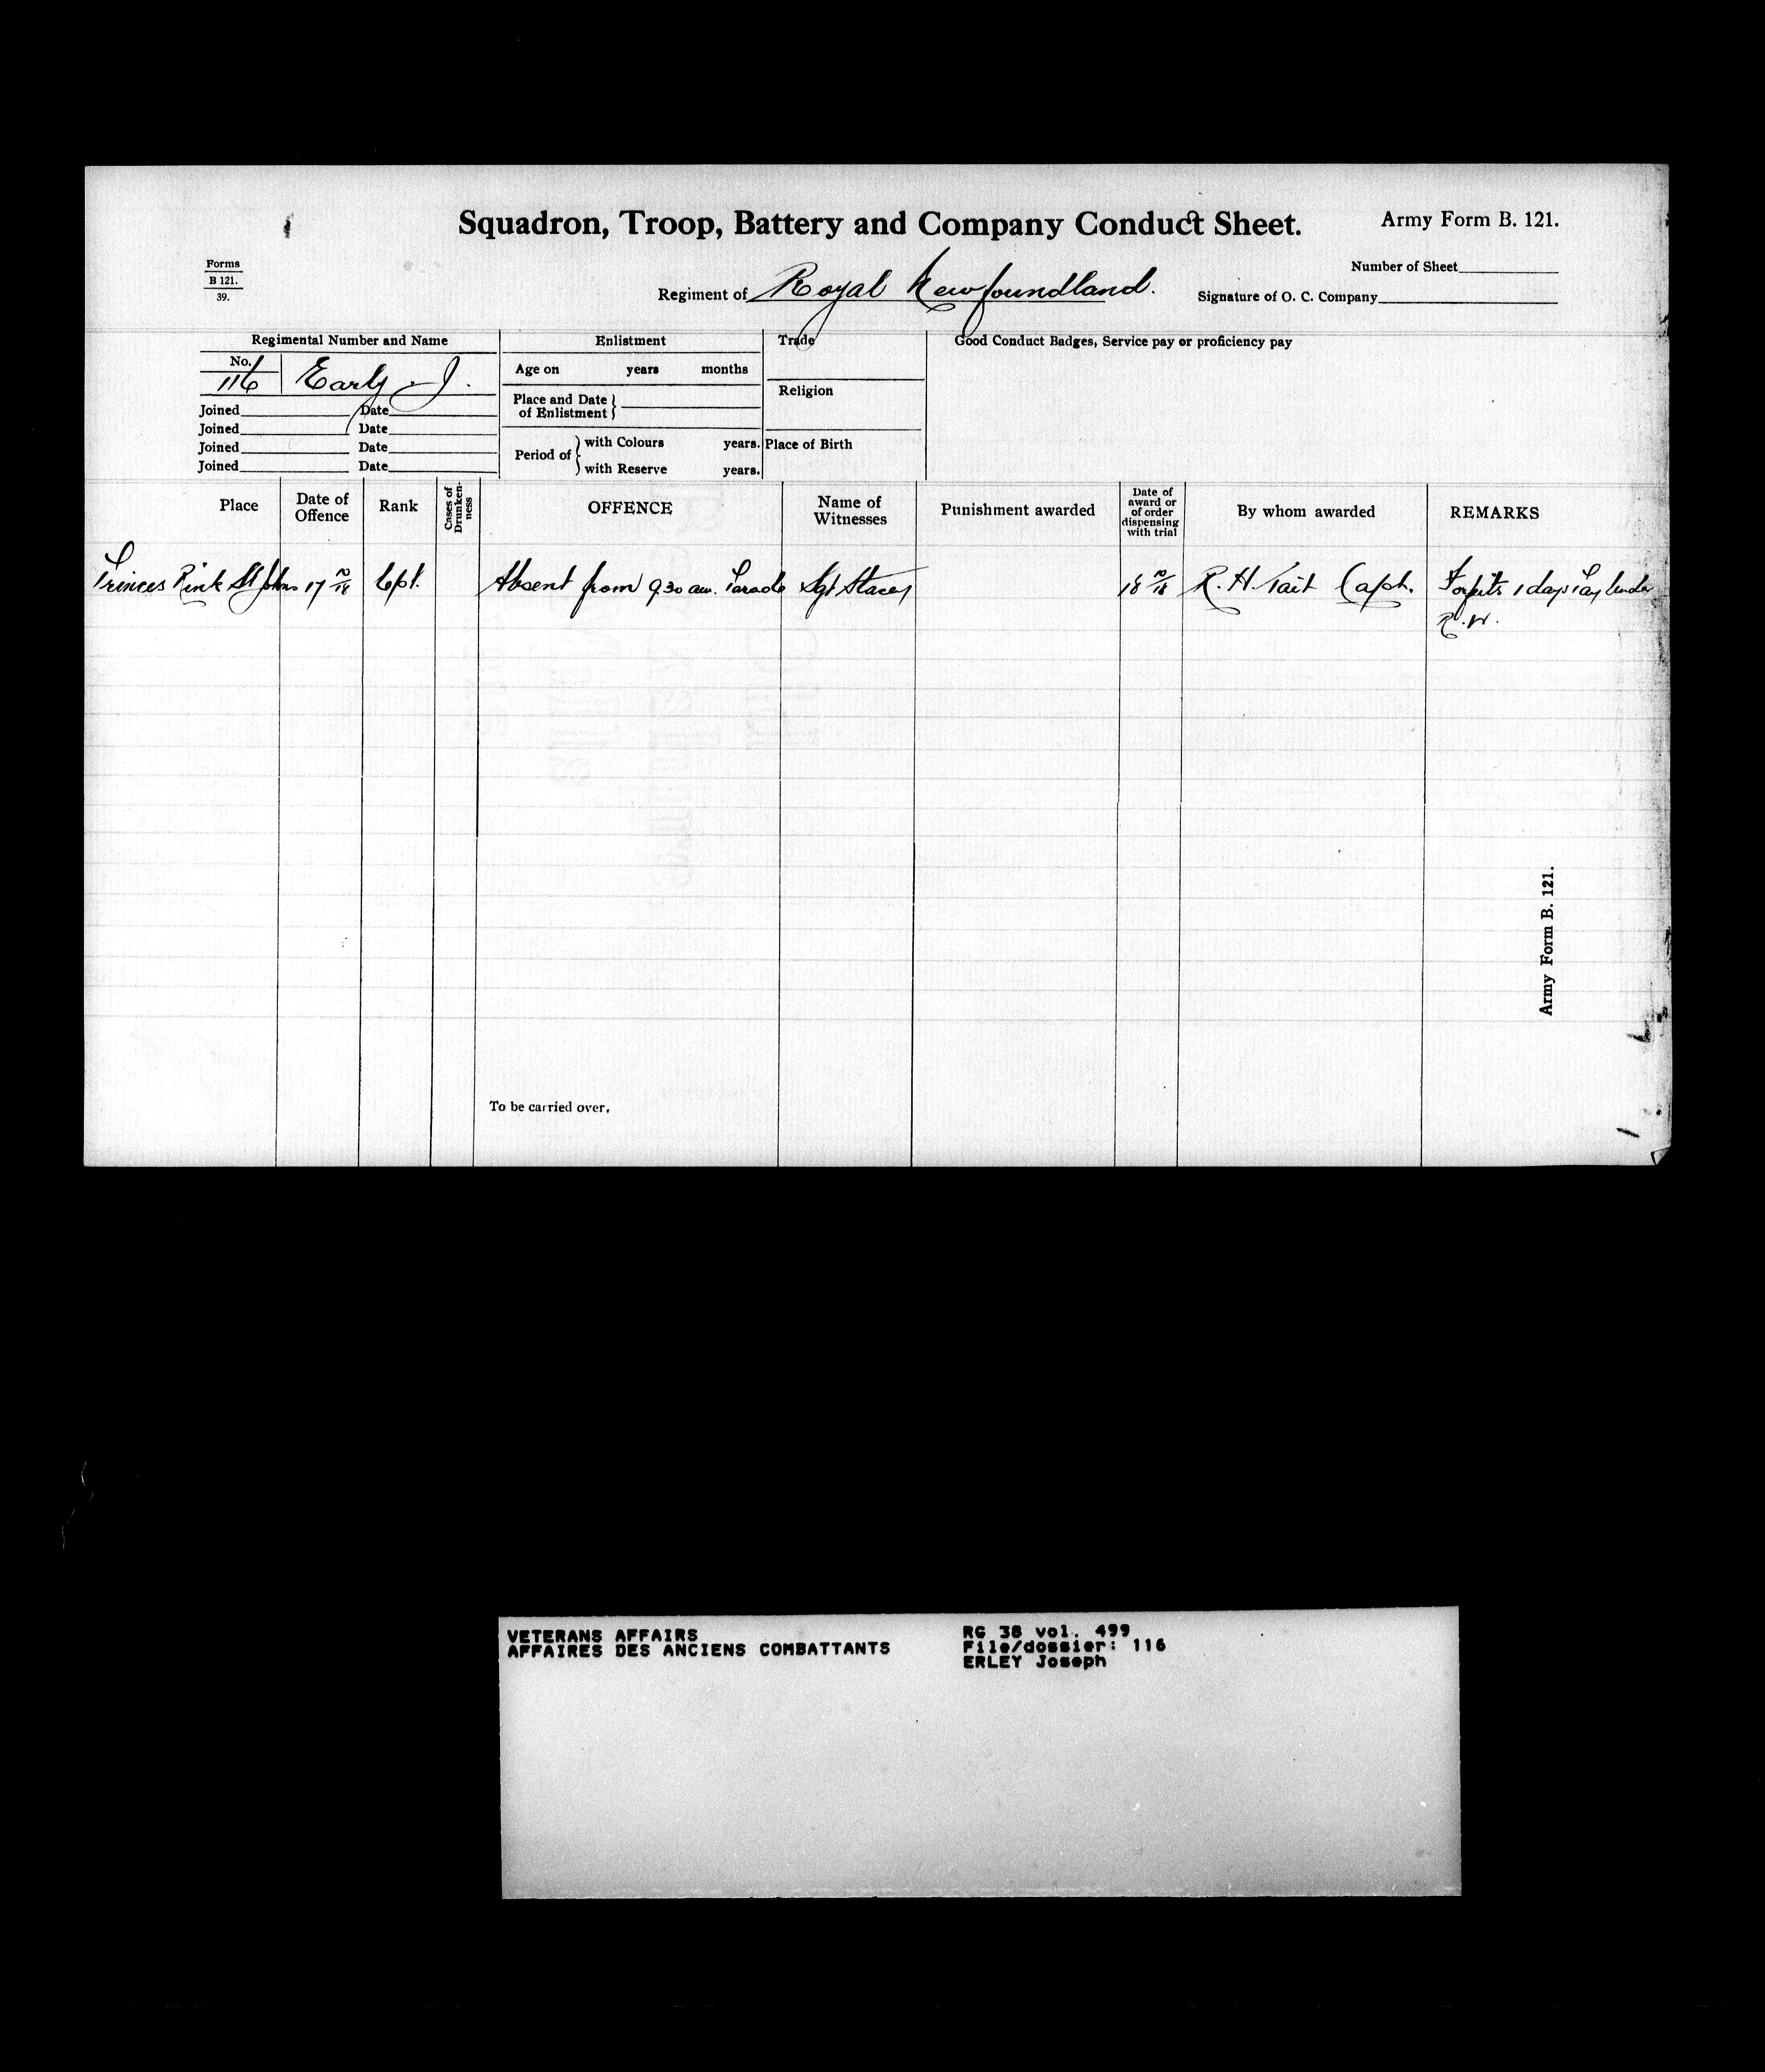 Squadron, Troop, Battery and Company Conduct Sheet.
Army Form B. 121.
Forms
B 121.
39.
Number of Sheet
Regiment of Royal Newfoundland.
Signature of O. C. Company
Regimental Number and Name
No.
116 Early J.
Joined Date
Joined Date
Joined Date
Joined Date
Enlistment
Age on years months
Place and Date
of Enlistment
Period of
with Colours years.
with Reserve years.
Trade
Religion
Place of Birth
Good Conduct Badges, Service pay or proficiency pay
Place
Date of
Offence
Rank
Cases of
Drunken-
ness
OFFENCE
Name of
Witnesses
Punishment awarded
Date of
award or
of order
dispensing
with trial
By whom awarded
REMARKS
Princes Rink St Johns 17 Cpl. Absent from 9.30 am. Parade Sgt Stacey 18 R. H. Tait Capt. Forfeits 1 days Pay under
R.W.
To be carried over.
Army Form B. 121.
VETERANS AFFAIRS
AFFAIRES DES ANCIENS COMBATTANTS
RG 38 vol. 499
File/dossier: 116
ERLEY Joseph